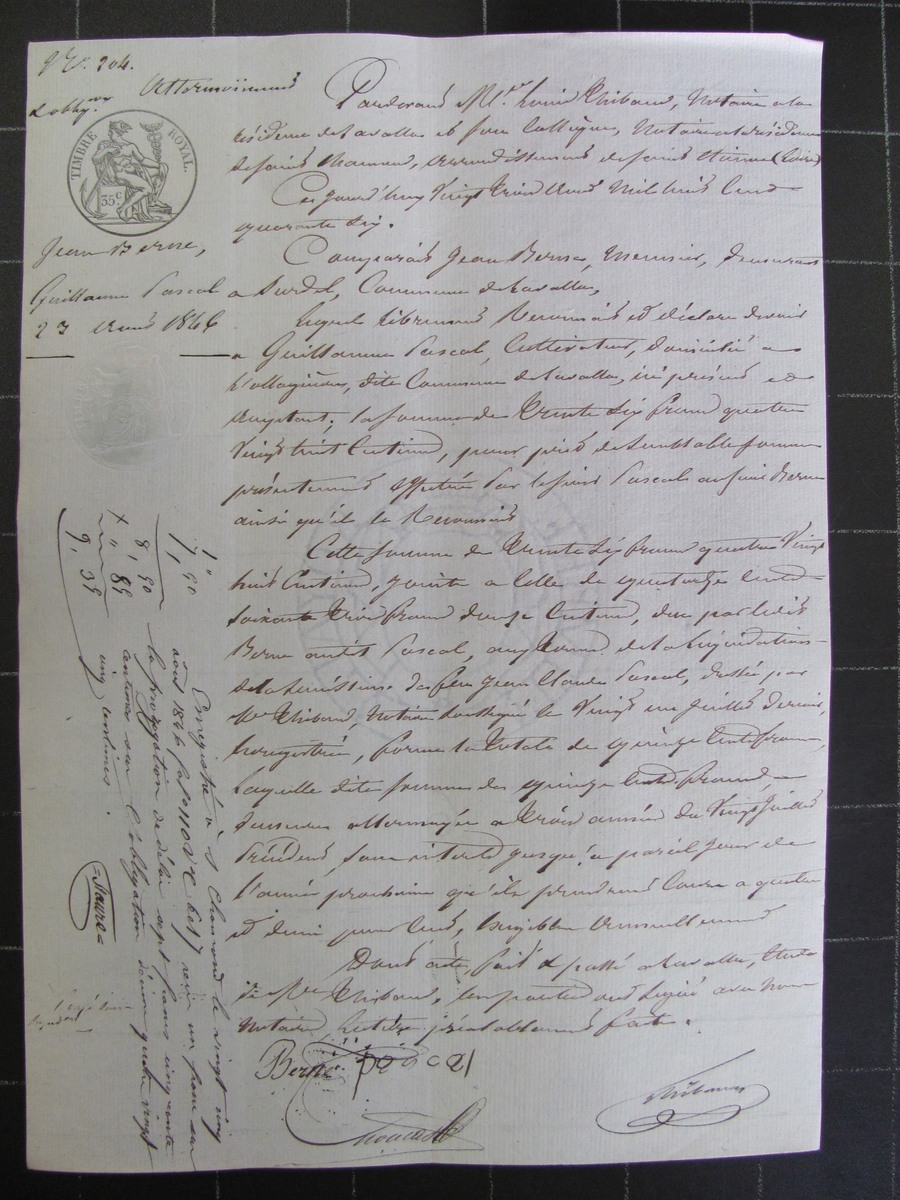 N.° 204.
Attermoiement
TIMBRE ROYAL.
35 c
Jean Berne,
Guillaume Pascal
23 1846
Pardevant M.tre Louis Thibaud, Notaire a la
résidence de Lavalla et son Collègue, Notaire a la résidence
de saint Chamond, arrondissement de saint Etienne (Loire)
Cejourd'huy Vingt trois Aout Mil huit Cent
quarante Six.
Comparait Jean Berne, Meunier, demeurant
a Surdel, Commune de Lavalla,
Lequel librement Reconnait et déclare devoir
a Guillaume Pascal, Cultivateur, domicilié a
dite Commune de Lavalla, ici présent et
acceptant, la somme de trente Six francs quatre
Vingt huit Centimes, pour prêt de semblable somme
présentement effectué par le sieur Pascal au sieur Berne
ainsi qu'il le Reconnait
Cette somme de trente Six francs quatre Vingt
huit Centimes, jointe a celle de quatorze Cent
soixante trois francs douze Centimes, due par ledit
Berne audit Pascal, aux termes de la liquidation
de la succession de feu Jean Claude Pascal, dressée par
M.e Thibaud, Notaire soussigné le Vingt un Juillet dernier,
Enregistrée, forme la totale de quinze Cents francs,
Laquelle dite somme de quinze Cents francs,
demeure attermoyée a trois années du Vingt Juillet
précédent, sans intérêt jusqu'a pareil jour de
l'année prochaine qu'ils prendront Cours a quatre
et demi pour Cent, Exigibles annuellement
Dont acte, fait & passé a Lavalla, Etude
de M.e Thibaud, les parties ont signé avec nous
Notaires Lecture préalablement faite.
Berne pascal
Thibaud
Enregistré à St Chamond le vingt cinq
août 1846 f.o 110 V.o C. 6 et 7 reçu un franc sur
la prorogation de délai sept francs cinquante
centimes sur l'obligation dixième quatre vingt
cinq centimes.
1, "
7, 50
8, 50
", 85
9, 35